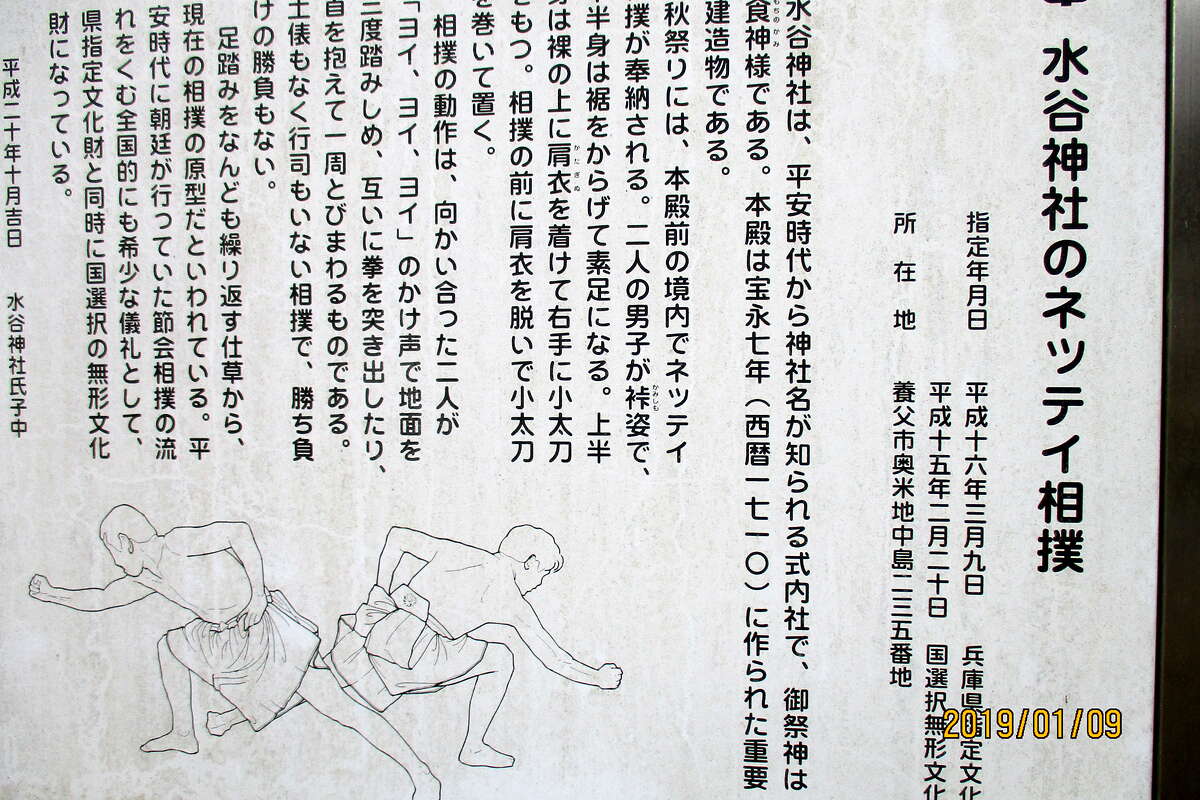 水谷神社のネッテイ相撲
指定年月日 平成十六年三月九日 兵庫県指定文化
平成十五年二月二十日 国選択無形文化
所在地 養父市奥米地中島二三五番地
水谷神社は、平安時代から神社名が知られる式内社で、御祭神は
食神様である。本殿は宝永七年（西暦一七一〇）に作られた重要
もちのかみ
建造物である。
秋祭りには、本殿前の境内でネッテイ
撲が奉納される。二人の男子が裃姿で、
かみしも
半身は裾をからげて素足になる。上半
は裸の上に肩衣を着けて右手に小太刀
かたぎぬ
をもつ。相撲の前に肩衣を脱いで小太刀
を巻いて置く。
相撲の動作は、向かい合った二人が
「ヨイ、ヨイ、ヨイ」のかけ声で地面を
三度踏みしめ、互いに拳を突き出したり、
首を抱えて一周とびまわるものである。
土俵もなく行司もいない相撲で、勝ち負
けの勝負もない。
足踏みをなんども繰り返す仕草から、
現在の相撲の原型だといわれている。平
安時代に朝廷が行っていた節会相撲の流
れをくむ全国的にも希少な儀礼として、
県指定文化財と同時に国選択の無形文化
財になっている。
平成二十年十月吉日 水谷神社氏子中
2019/01/09